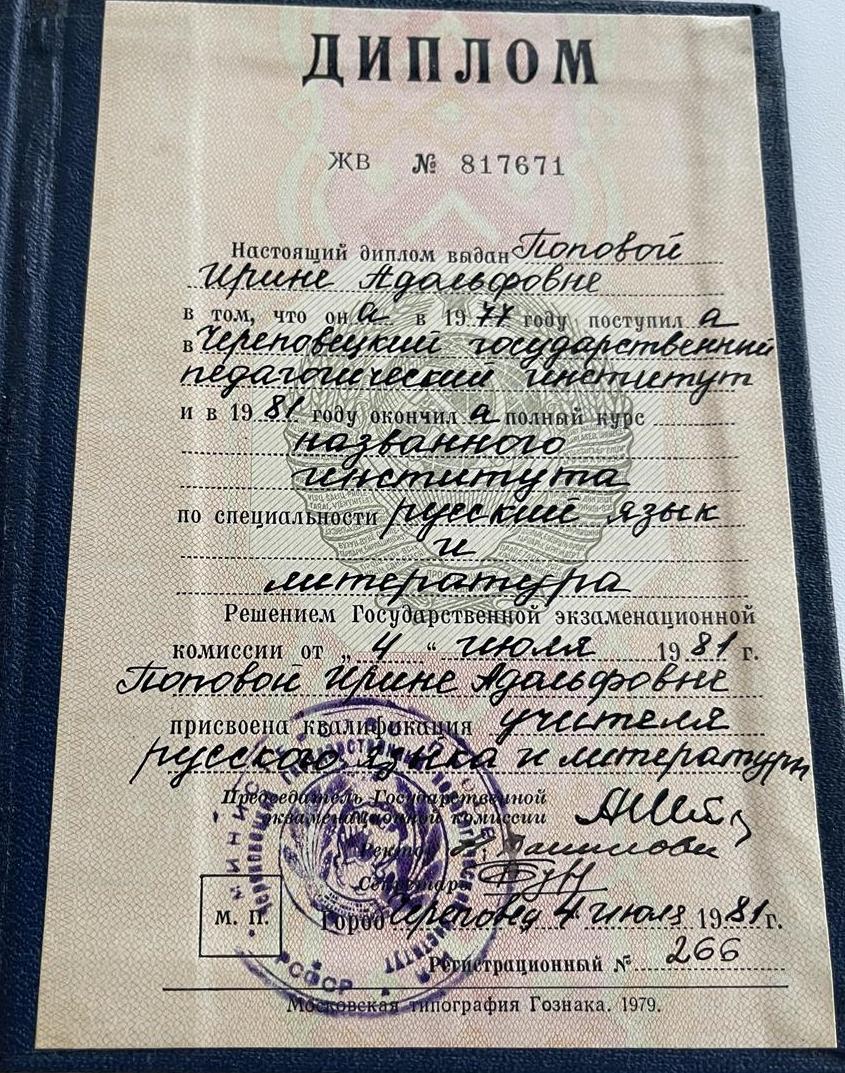 ДИПЛОМ
ЖВ № 817671
Настоящий диплом выдан Поповой
Ирине Адольфовне
в том, что он а в 1977 году поступил а
в Череповецкий государственный
педагогический институт
и в 1981 году окончил а полный курс
названного
института
по специальности русский язык
и
литература
Решением Государственной экзаменационной
комиссии от „ 4 “ июля 1981 г.
Поповой Ирине Адольфовне
присвоена квалификация учителя
русского языка и литературы
Председатель Государственной
экзаменационной комиссии
Ректор
Секретарь
М. П.
Город Череповец 4 июля 1981 г.
РСФСР
Регистрационный № 266
Московская типография Гознака. 1979.